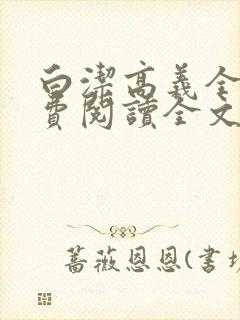 白潔高義全
費閱讀全文
薔薇恩恩(书坊